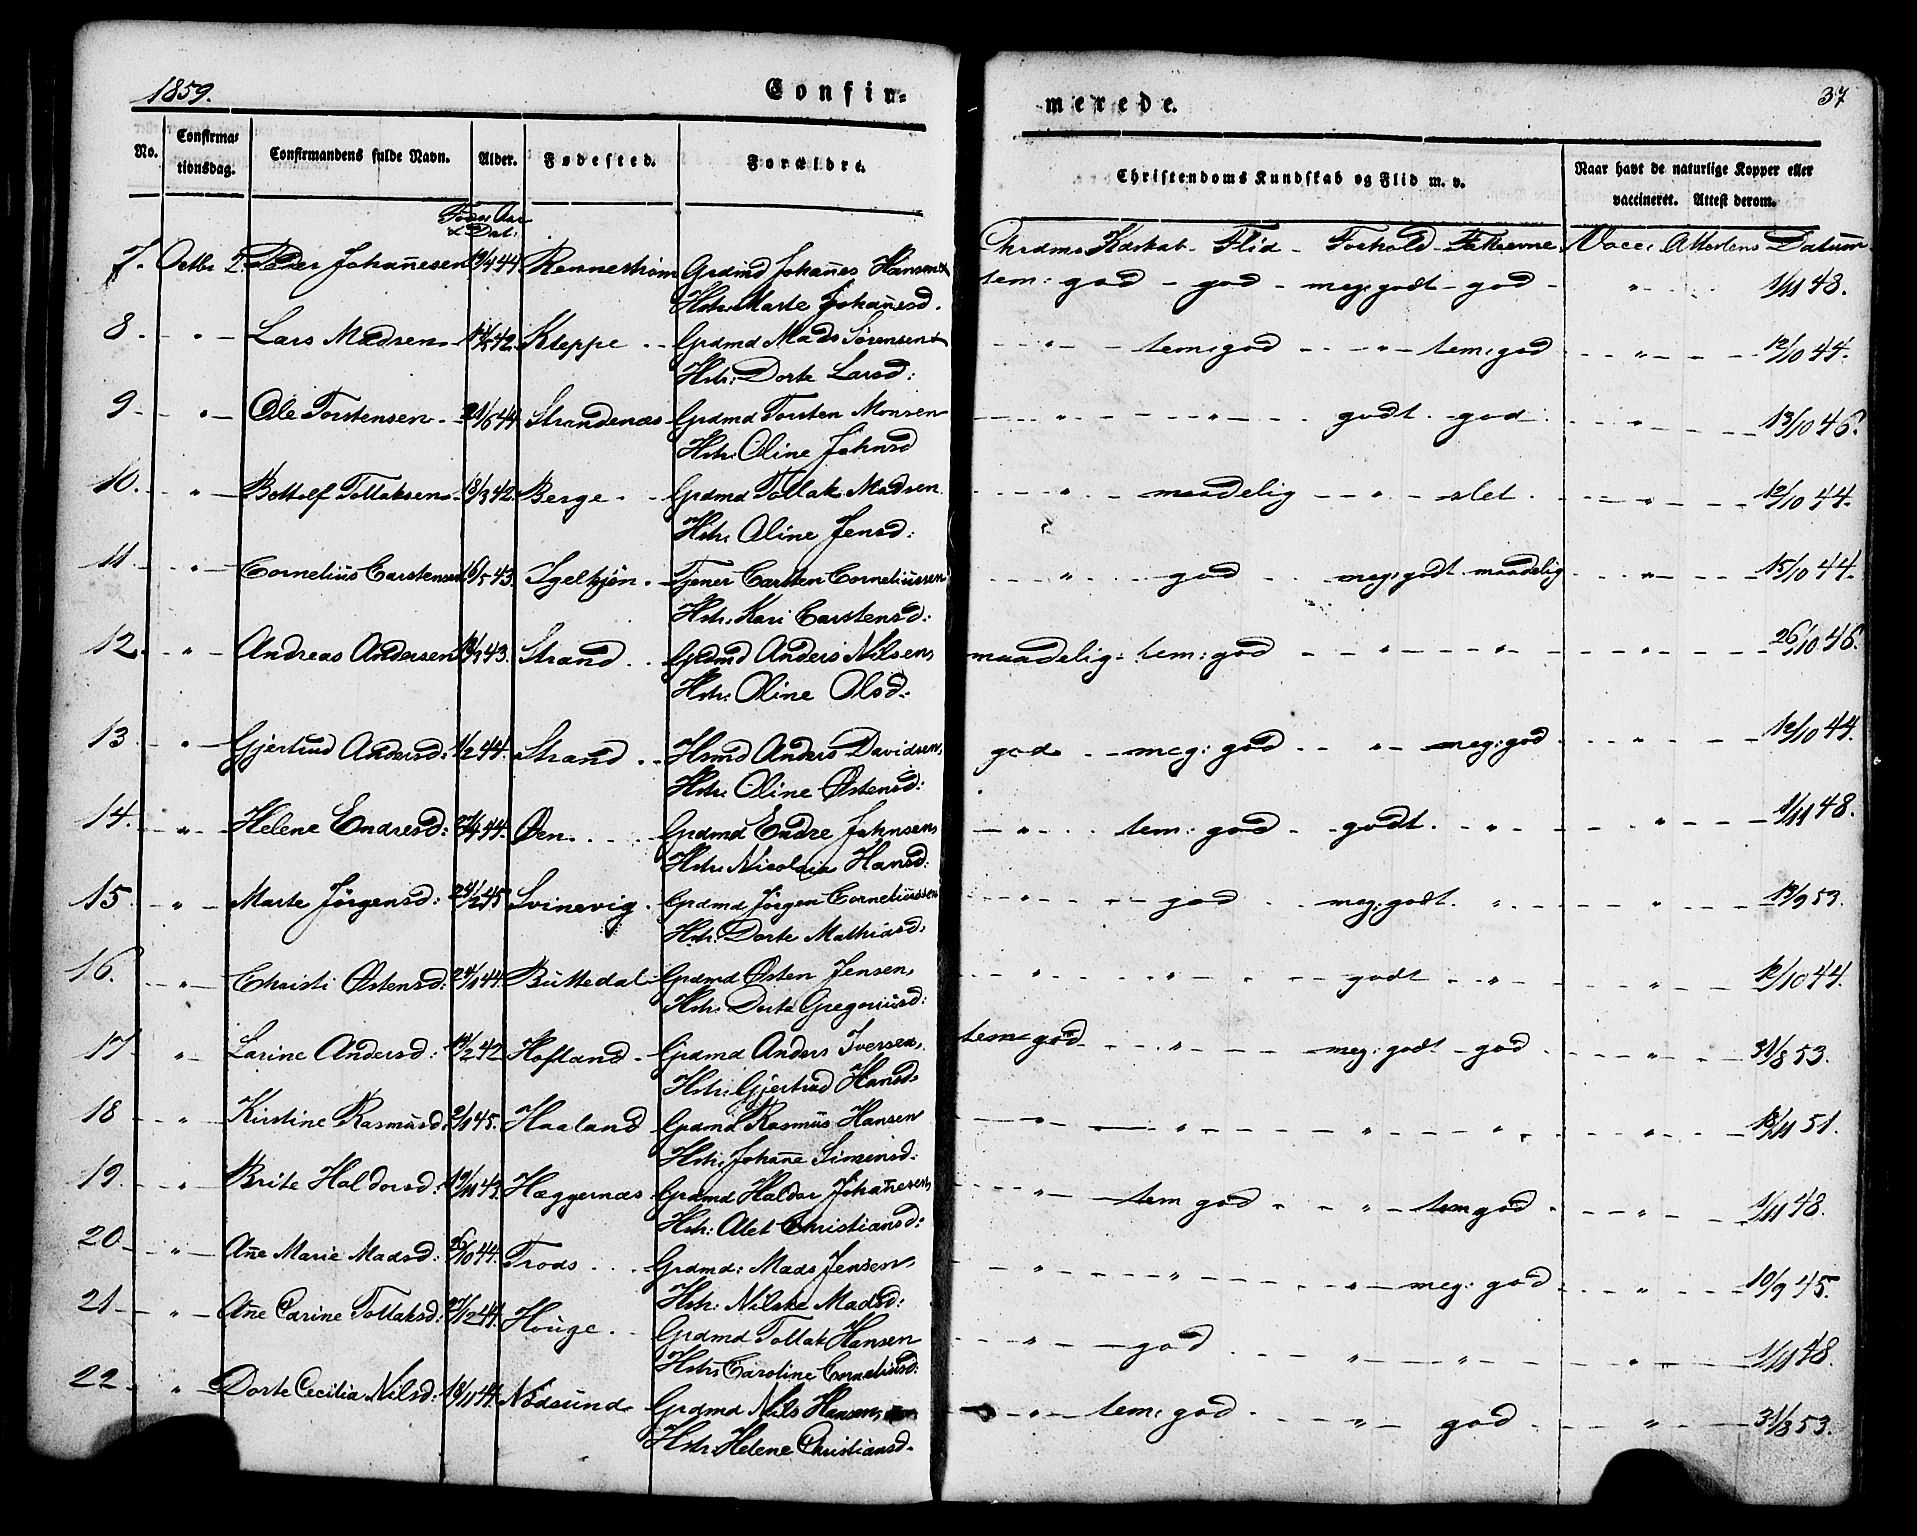 1859.
Confir-
merede.
37
No.
Confirma-
tionsdag.
Confirmandens fulde Navn.
Alder.
Fødested.
Forældre.
Christendoms Kundskab og Flid m. v.
Naar havt de naturlige Kopper eller
vaccineret. Attest derom.
Födn Aar
& Dat:
Chrdms Kdskab - Flid - Forhold - Evnerne Vacc: Attestens Datum
7. Octbr 2 Peder Johañesen 44 Rennestrøm Grdmd Johañes Hansen tem: god - god - meg: godt - god - " 1/11 48.
Hstr. Marte Johañesd.
8 " Lars Madsen 42. Kleppe Grdmd Mads Sørensen " tem: god " tem: god " 12/10 44.
Hstr: Dorte Larsd:
9 " Ole Torstensen 21/6 44 Strandenæs Grdmd Torsten Monsen " " godt god " 13/10 46.
Hstr: Oline Johnsd
10. " Bottolf Tollaksen 18/3 42. Berge Grdmd Tollak Madsen " maadelig " slet " 12/10 44.
Hstr: Oline Jensd:
11 " Cornelius Carstensen 16/5 43. Igeltjøn Tjener Carsten Corneliussen " god meg: godt maadelig " 15/10 44.
Hstr: Kari Carstensd:
12. " Andreas Andersen 43. Strand Grdmd Anders Nilsen maadelig: tem: god " " " 26/10 46.
Hstr: Oline Olsd:
13 " Gjertrud Andersd: 1/2 44. Strand Hsmd Anders Davidsen god meg: god " meg: god " 12/10 44.
Hstr: Oline Østensd:
14. " Helene Endresd: 44. Øen Grdmd Endre Johnsen " tem: god godt " " 1/11 48.
Hstr: Nicolaia Hansd:
15 " Marte Jørgensd: 24/2 45 Svinevig Grdmd Jörgen Corneliussen " god meg: godt " " 13/9 53.
Hstr: Dorte Mathiasd:
16. " Christi Østensd: 44 Buttedal Grdmd Østen Jensen " " godt " " 12/10 44.
Hstr: Dorte Gregoriusd:
17 " Larine Andersd: 42 Hofland Grdmd Anders Iversen tem: god " meg: godt god " 31/8 53.
Hstr: Gjertrud Hansd:
18 " Kirstine Rasmusd: 45. Haaland Grdmd Rasmus Hansen " " " " " 18/11 51.
Hstr: Johañe Simensd:
19. " Brite Haldorsd: 19/11 43. Hæggernæs Grdmd Haldor Johañesen " tem god " tem god " 1/11 48.
Hstr: Alet Christiansd:
20 " Añe Marie Madsd: 26/10 44. Trods Grdmd: Mads Jensen " " " meg: god " 10/9 45.
Hstr: Nilske Madsd:
21 " Añe Carine Tollaksd: 27/12 44. Houge Grdmd Tollak Hansen " god " " " 1/11 48.
Hstr: Caroline Corneliusd:
22 " Dorte Cecilia Nilsd: 18/11 44. Nödsund Grdmd Nils Hansen " tem: god " god " 31/8 53.
Hstr: Helene Christiansd.